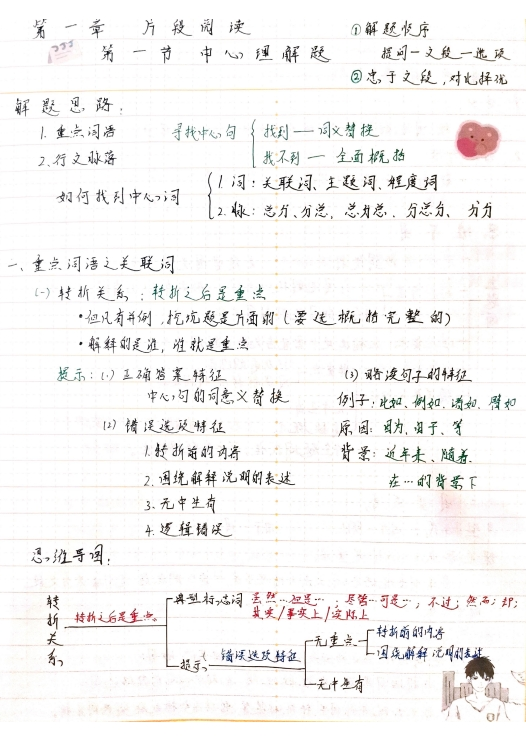 第一章 片段阅读
第一节 中心理解题
①解题顺序
提问—文段—选项
②忠于文段,对比择优
解题思路:
1.重点词语
2.行文脉落
寻找中心句
找到——同义替换
找不到——全面概括
如何找到中心词
1.词:关联词、主题词、程度词
2.脉:总分、分总、总分总、分总分、分分
一、重点词语之关联词
(一)转折关系:转折之后是重点
•但凡有并例,挖坑题是片面的(要选概括完整的)
•解释的是谁,谁就是重点
提示:(1)正确答案特征
中心句的同意义替换
(2)错误选项特征
1.转折前的内容
2.围绕解释说明的表述
3.无中生有
4.逻辑错误
(3)略读句子的特征
例子:比如、例如、诸如、譬如
原因:因为、由于、等
背景:近年来、随着、
在…的背景下
思维导图:
转折关系
转折之后是重点。
典型标志词
虽然…但是…;尽管…可是…,不过;然而;却;
其实/事实上/实际上
提示
错误选项特征
无重点
转折前的内容
围绕解释说明的表述
无中生有